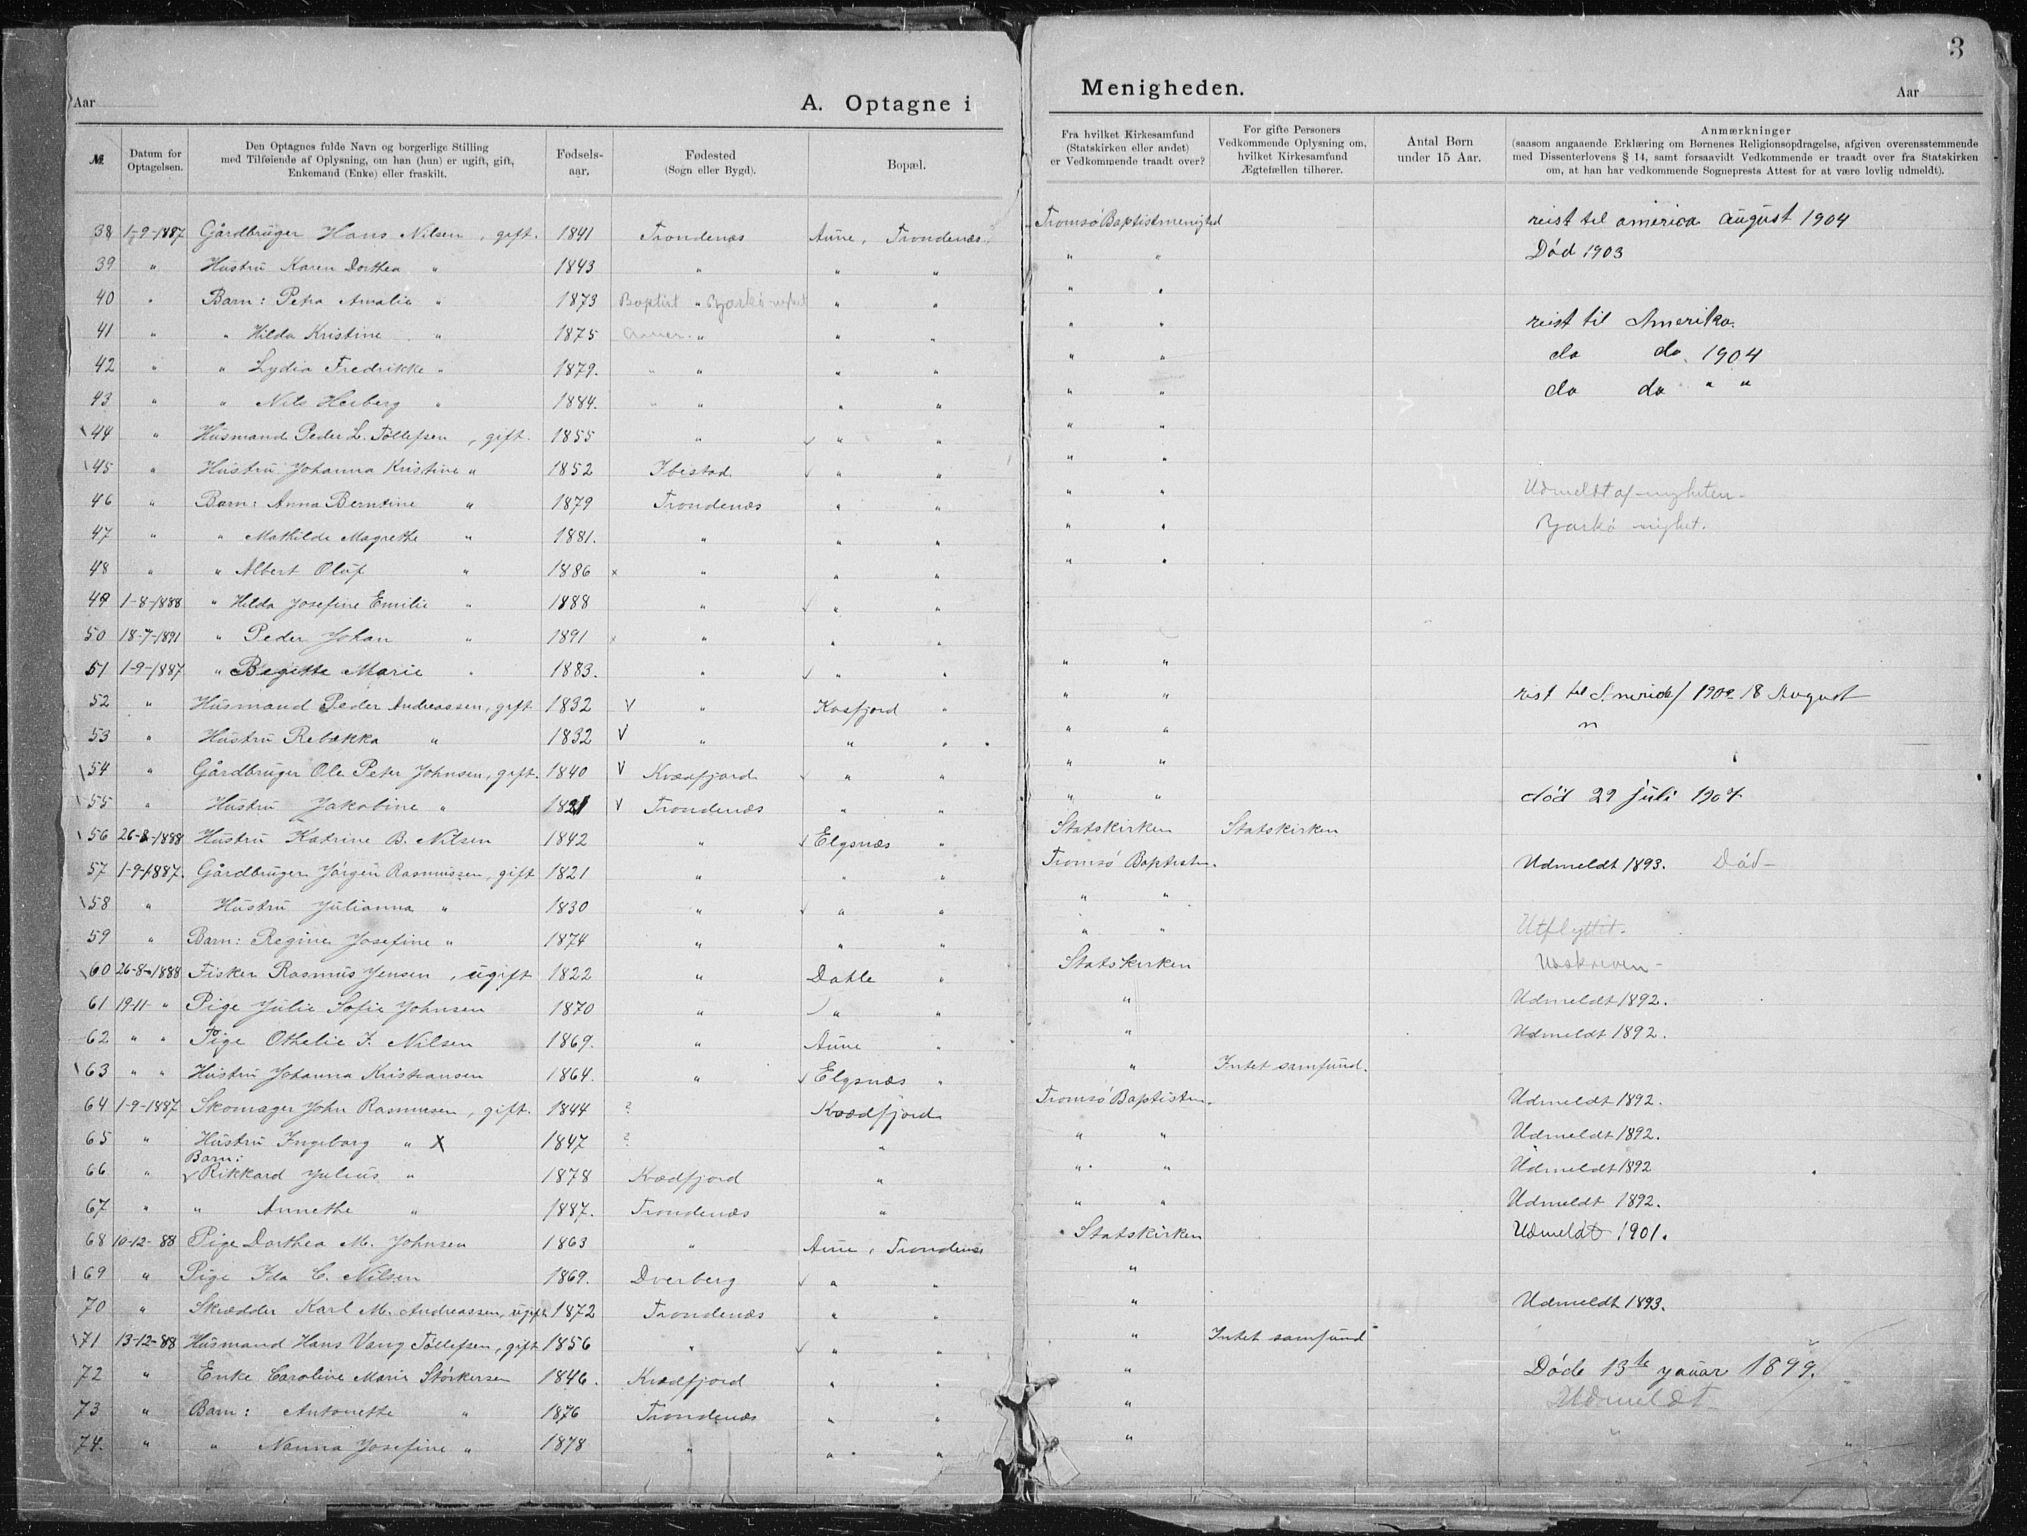 3
Aar
A. Optagne i Menigheden.
Aar
№
Datum for Optagelsen.
Den Optagnes fulde Navn og borgerlige Stilling med Tilføiende af Oplysning, om han (hun) er ugift, gift, Enkemand (Enke) eller fraskilt.
Fødsels-aar.
Fødested (Sogn eller Bygd).
Bopæl.
Fra hvilket Kirkesamfund (Statskirken eller andet) er Vedkommende traadt over?
For gifte Personers Vedkommende Oplysning om, hvilket Kirkesamfund Ægtefællen tilhører.
Antal Børn under 15 Aar.
Anmærkninger (saasom angaaende Erklæring om Børnenes Religionsopdragelse, afgiven overensstemmende med Dissenterlovens § 14, samt forsaavidt Vedkommende er traadt over fra Statskirken om, at han har vedkommende Sogneprests Attest for at være lovlig udmeldt).
38 1-9-1887 Gårdbruger Hans Nilsen, gift. 1841 Trondenæs Aune, Trondenæs. Tromsø Baptistmenighed reist til america august 1904
39 " Hustru Karen Dorthea " 1843 " " " " " Død 1903
40 " Barn: Petra Amalie " 1873 Baptist " Bjarkø " " " "
41 " " Hilda Kristine " 1875 " " " " " reist til Amerika.
42 " " Lydia Fredrikke " 1879. " " " " " " do do. 1904
43 " " Nils Herberg " 1884. " " " " " " do do " "
\44 " Husmand Peder L. Tøllefsen, gift. 1855 " √ " " " "
\45 " Hustru Johanna Kristine " 1852 Ibestad √ " " " "
46 " Barn: Anna Berntine " 1879 Trondenæs " " " " Udmeldt af
47 " " Mathilde Magrethe " 1881. " " " " " Bjarkø
48 " " Albert Oluf " 1886 x " " " " "
49 1-8-1888 " Hilda Josefine Emilie " 1888 " √ " "
50 18-7-1891 " Peder Johan " 1891 x " " "
51 1-9-1887 " Begitte Marie " 1883. " √ " " " "
52 " Husmand Peder Andreassen, gift 1832 V " Kasfjord " " " 18 August
53 " Hustru Rebækka " 1832 V " " " " " "
\54 " Gårdbruger Ole Peter Johnsen, gift. 1840 V Kvædfjord √ " " " "
\55 " Hustru Jakobine " 1821 V Trondenæs " " " " død 29 juli 1904
\56 26-8-1888 Hustru Katrine B. Nilsen 1842 " √ Elgsnæs " Statskirken Statskirken
57 1-9-1887. Gårdbruger Jørgen Rasmussen, gift 1821 " " " Tromsø Baptistm. Udmeldt 1893. Død
\58 " Hustru Julianna " 1830 " √ " " " "
59 " Barn: Regine Josefine " 1874 " " " " " Utflyttet.
\60 26-8-1888 Fisker Rasmus Jensen, ugift 1822 " Dahle " Statskirken
61 19-11 " Pige Julie Sofie Johnsen 1870 " " " " Udmeldt 1892.
62 " " Pige Othelie J. Nilsen 1869. " Aune " " Udmeldt 1892.
\63 " " Hustru Johanna Kristiansen 1864. " √ Elgsnæs " " Intet samfund.
64 1-9-1887 Skomager John Rasmusen, gift. 1844 ? Kvædfjord Tromsø Baptistm. Udmeldt 1892.
65 " Hustru Ingeborg " X 1847 ? " " " Udmeldt 1892.
Barn:
66 " √ Rikkard Julius " 1878 Kvædfjord " " " Udmeldt 1892
67 " " Annethe " 1887. Trondenæs " " " Udmeldt 1892.
68 10-12-88 Pige Dorthea M. Johnsen 1863 " Aune, Trondenæs Statskirken Udmeldt 1901.
\69 " Pige Ida C. Nilsen 1869. Dverberg √ " " "
70 " Skrædder Karl M. Andreassen, ugift 1872 Trondenæs " " " Udmeldt 1893.
\71 13-12-88 Husmand Hans Vang Tøllefsen, gift 1856 " √ " " " Intet samfund
72 " Enke Caroline Marie Størkersen 1846. Kvædfjord " " " Døde 13te januar 1899.
73 " Barn: Antonette " 1876 Trondenæs " " " Udmeldt
74. " " Nanna Josefine " 1878 " " " " " "